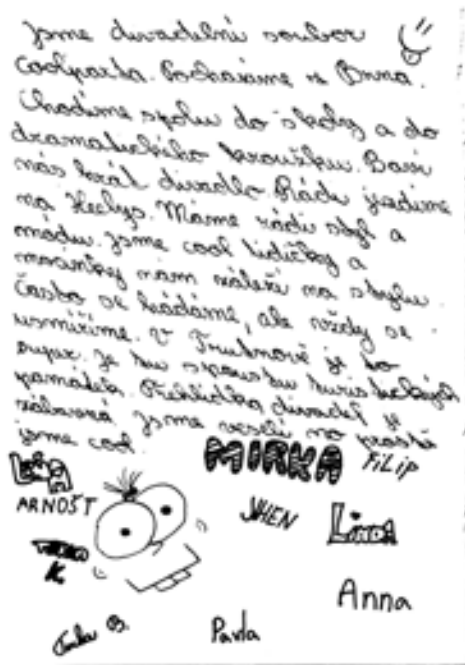 Jsme divadelní soubor
Coolparta. Pocházíme z Brna.
Chodíme spolu do školy a do
dramatického kroužku. Baví
nás hrát divadlo. Rádi jezdíme
na Máme rádi styl a
módu. Jsme cool lidičky a
nám záleží na stylu.
Často se hádáme, ale vždy se
usmíříme. V Trutnově je to
super. Je tu spoustu turistických
památek. Přehlídka divadel je
zábavná. Jsme veselí no prostě
jsme cool.
MIRKA FILIP
ARNOŠT
LINDA
K.
Anna
B.
Pavla